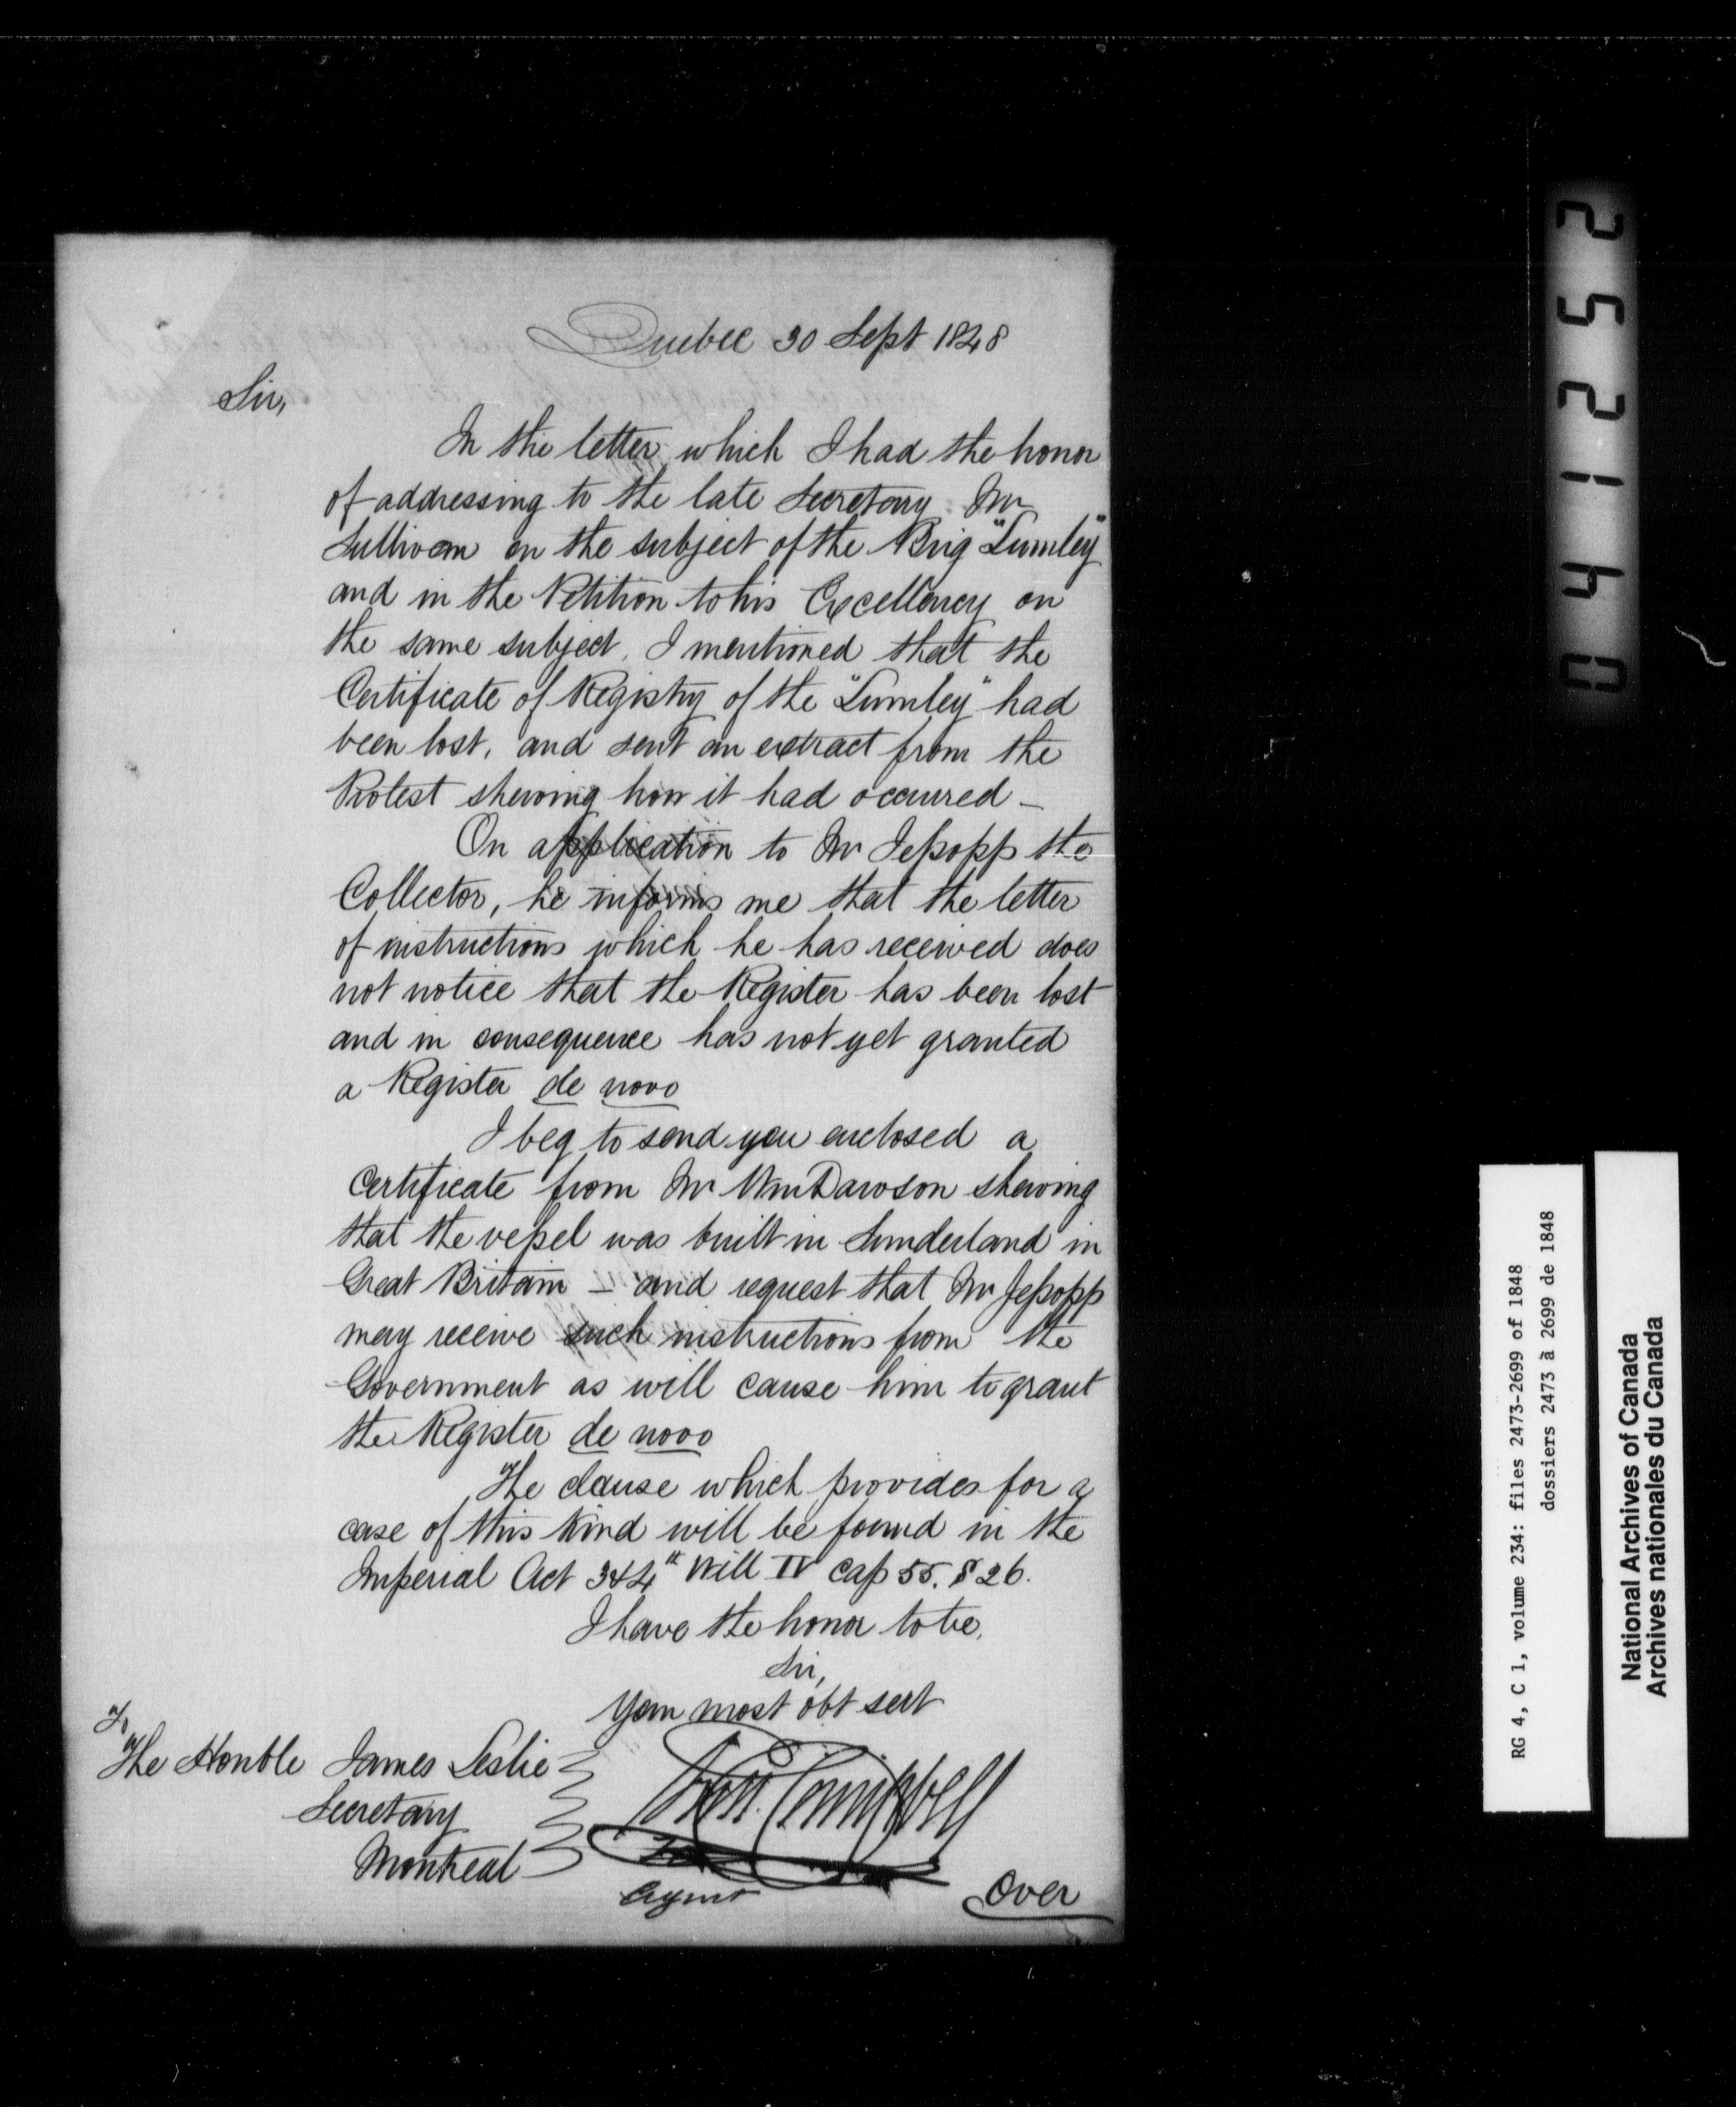 Quebec 30 Sept 1848
Sir,
In the letter which I had the honor
of addressing to the late Secretary Mr
Sullivan on the subject of the Brig "Lumley"
and in the Petition to his Excellency on
the same subject, I mentioned that the
Certificate of Registry of the "Lumley" had
been lost, and sent an extract from the
Protest shewing how it had occurred —
On application to Mr Jessopp the
Collector, he informs me that the letter
of instructions which he has received does
not notice that the Register has been lost
and in consequence has not yet granted
a Register de novo
I beg to send you enclosed a
Certificate from Mr Wm Dawson shewing
that the vessel was built in Sunderland in
Great Britain — and request that Mr Jessopp
may receive such instructions from the
Government as will cause him to grant
the Register de novo
The clause which provides for a
case of this kind will be found in the
Imperial Act 3 & 4th Will IV cap 55. § 26.
I have the honor to be,
Sir,
Your most obt sert
Campbell
Agent
To
The Honble James Leslie
Secretary
Montreal
Over
041252
RG 4, C 1, volume 234: files 2473-2699 of 1848
dossiers 2473 à 2699 de 1848
National Archives of Canada
Archives nationales du Canada